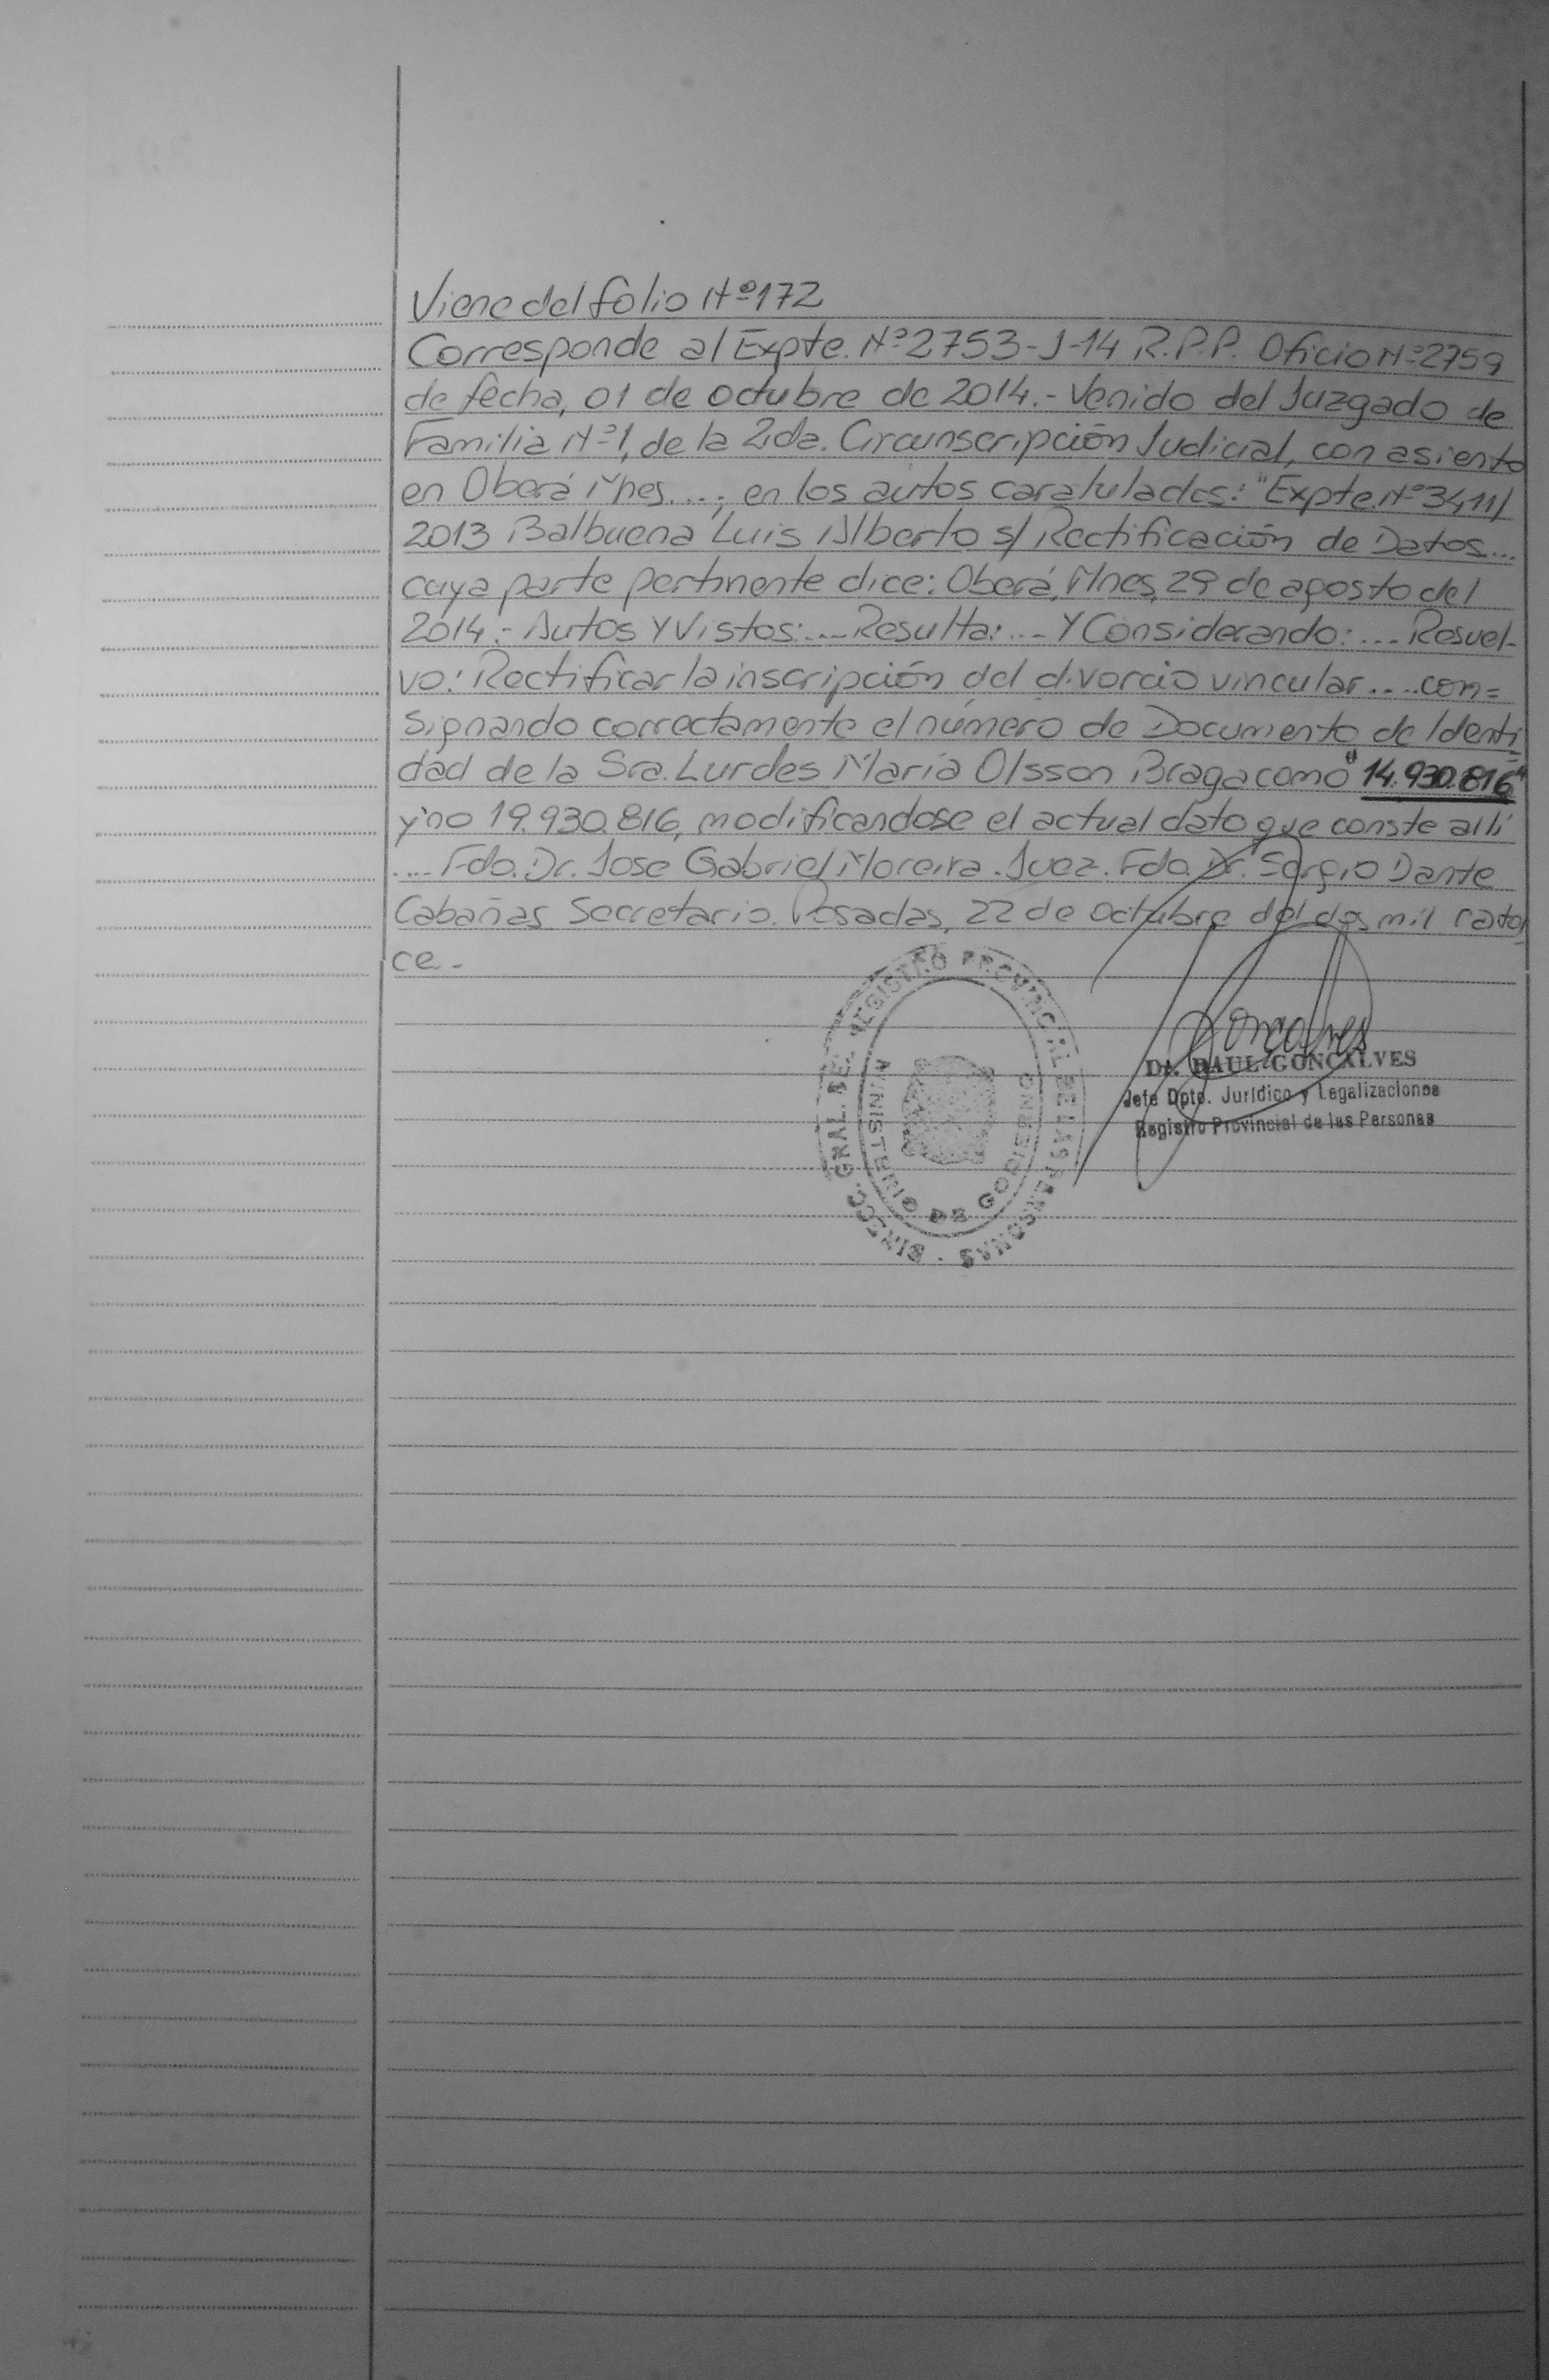 Viene del folio Nº172
Corresponde al Expte. Nº2753-J-14 R.P.P. Oficio Nº2759
de fecha, 01 de octubre de 2014.- Venido del Juzgado de
Familia Nº1, de la 2da. Circunscripción Judicial, con asiento
en Oberá Mnes....; en los autos caratulados: "Expte.Nº3411/
2013 Balbuena Luis Alberto s/ Rectificación de Datos...
cuya parte pertinente dice: Oberá, Mnes, 29 de agosto del
2014.- Autos Y Vistos:.... Resulta:.... Y Considerando:.... Resuel-
vo: Rectificar la inscripción del divorcio vincular.... con=
signando correctamente el número de Documento de Identi
dad de la Sra. Lurdes María Olsson Braga como "14.930.816"
y no 19.930.816, modificandose el actual dato que conste allí
.... Fdo. Dr. Jose Gabriel Moreira. Juez. Fdo. Dr. Sergio Dante
Cabañas Secretario. Posadas, 22 de octubre del dos mil cator
ce.-
DIRECC. GRAL. DEL REGISTRO PROVINCIAL DE LAS PERSONAS
MINISTERIO DE GOBIERNO
Goncalves
Dr. RAUL GONCALVES
Jefe Dpto. Jurídico y Legalizaciones
Registro Provincial de las Personas